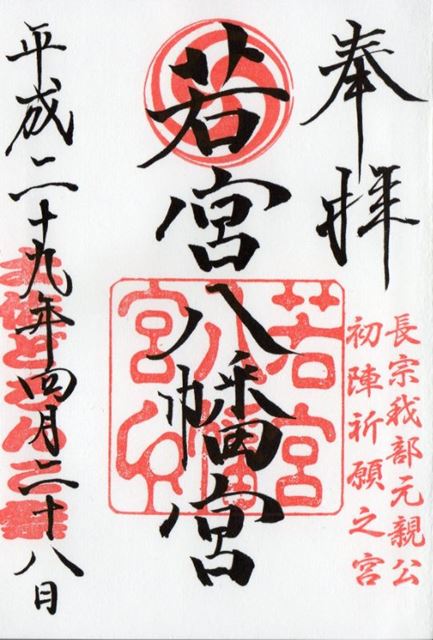 奉拝
長宗我部元親公
初陣祈願之宮
若宮八幡宮
若宮
八幡
宮
平成二十九年四月二十八日